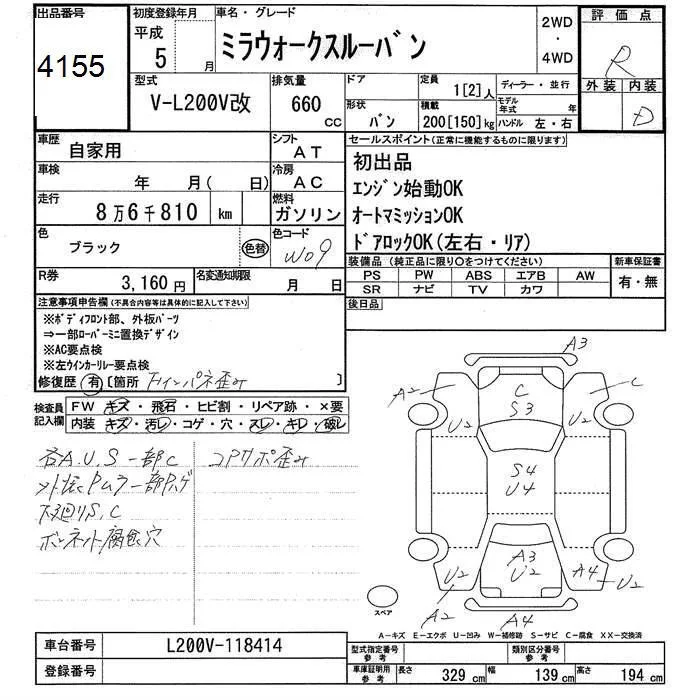 出品番号
4155
初度登録年月
平成
5 月
車名・グレード
ミラウォークスルーバン
2WD
・
4WD
評価点
R
外装 内装
D
型式
V-L200V改
排気量
660
CC
ドア
形状
バン
定員
1[2]人
積載
200[150]kg
ディーラー・並行
モデル年式 年
ハンドル 左・右
車歴
自家用
シフト
AT
車検
年 月( 日)
冷房
AC
走行
8万6千810 km
燃料
ガソリン
色
ブラック
色替
色コード
W09
R券
3,160円
名変通知期限
月 日
セールスポイント(正常に機能するものに限ります)
初出品
エンジン始動OK
オートマミッションOK
ドアロックOK(左右・リア)
装備品(純正品に限り○をつけてください)
PS PW ABS エアB AW
SR ナビ TV カワ
新車保証書
有・無
後日品
注意事項申告欄(不具合内容等は具体的に記入して下さい)
※ボディフロント部、外板パーツ
⇒一部ローバーミニ置換デザイン
※AC要点検
※左ウインカーリレー要点検
修復歴 有 [箇所 F インパネ歪み ]
検査員記入欄
FW キズ・飛石・ヒビ割・リペア跡・×要
内装 キズ・汚レ・コゲ・穴・スレ・キレ・破レ
各A.U.S 一部C
コアサポ歪み
外板Pムラ一部Pハゲ
下廻りS,C
ボンネット腐食穴
A3
A2
C
C
S3
U2
U2
S4
U4
A3
U2
U2
A4
U2
A2
A4
スペア
A-キズ E-エクボ U-凹み W-補修跡 S-サビ C-腐食 XX-交換済
車台番号
L200V-118414
登録番号
型式指定番号
参考
類別区分番号
参考
車庫証明用
参考
長さ 329 cm
幅 139 cm
高さ 194 cm